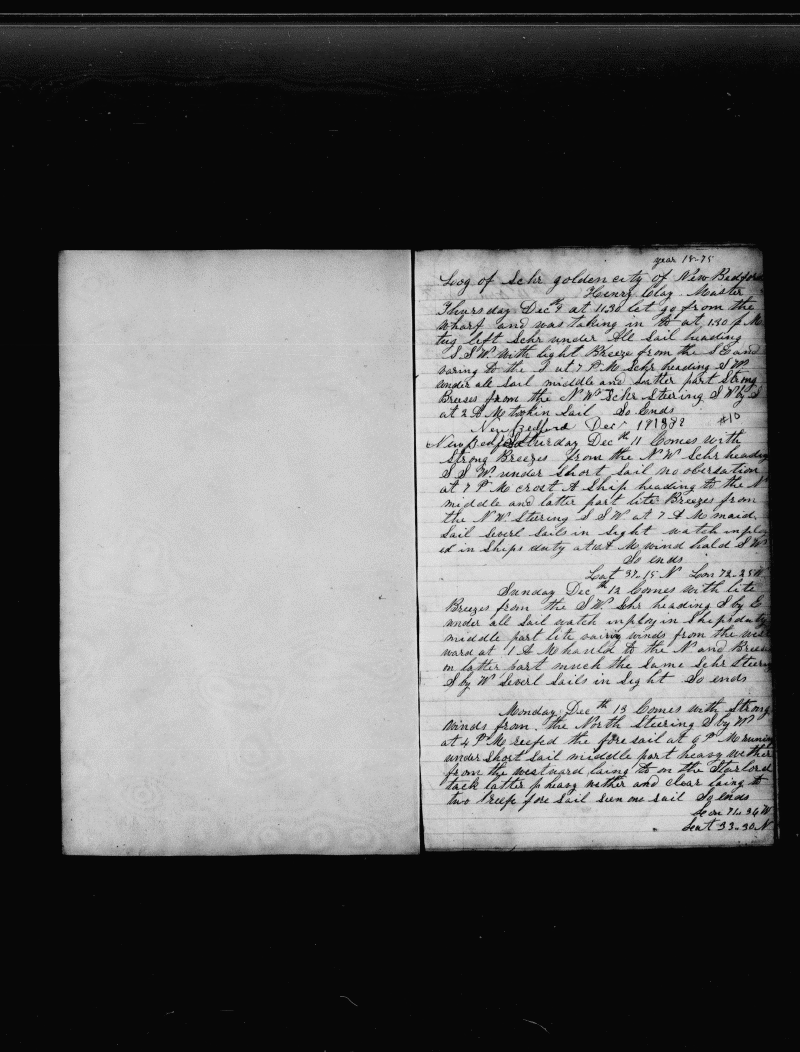 year 1875
Log of Schr golden city of New Bedford
Henry Clay Master
Thursday Dec 9th at 11.30 let go from the
wharf and was taking in to at 1.30 P M
tug left Schr under All Sail heading
S.S.W. with light Breeze from the S E and
varing to the at 7 P. M Schr heading S W
under all Sail middle and latter part Strong
Breeses from the N W Schr Steering S W by S
at 2 A M tookin Sail So Ends
New Bedford Dec #10
New Bedford Saturday Dec th 11 Comes with
Strong Breezes from the N W Schr heading
S S W. under Short Sail no obersation
at 7 P. M crost A Ship heading to the N
middle and latter part lite Breezes from
the N W. Steering S S W. at 7 A M maid
Sail Severl Sails in Sight watch imploy
ed in Ships duty at M wind hald S W
So ends
Lat 37.15 N Lon 72.25 W
Sunday Dec th 12 Comes with lite
Breezes from the S W. Schr heading S by E
under all Sail watch imploy in Ships duty
middle part lite vairing winds from the west
ward at 1 A M hauld to the N and Breese
on latter part much the Same Schr Steering
S by W Severl Sails in Sight So ends
Monday Dec th 13 Comes with Strong
winds from the North Steering S by W
at 4 P M reefed the fore sail at 9 P. M runing
under Short Sail middle part heavy wether
from the westward laing to on the Starlord
tack latter p heavy wether and clear laing to
two reefe fore Sail Seen one Sail So ends
Lon 71.34 W
Lat 33.30 N